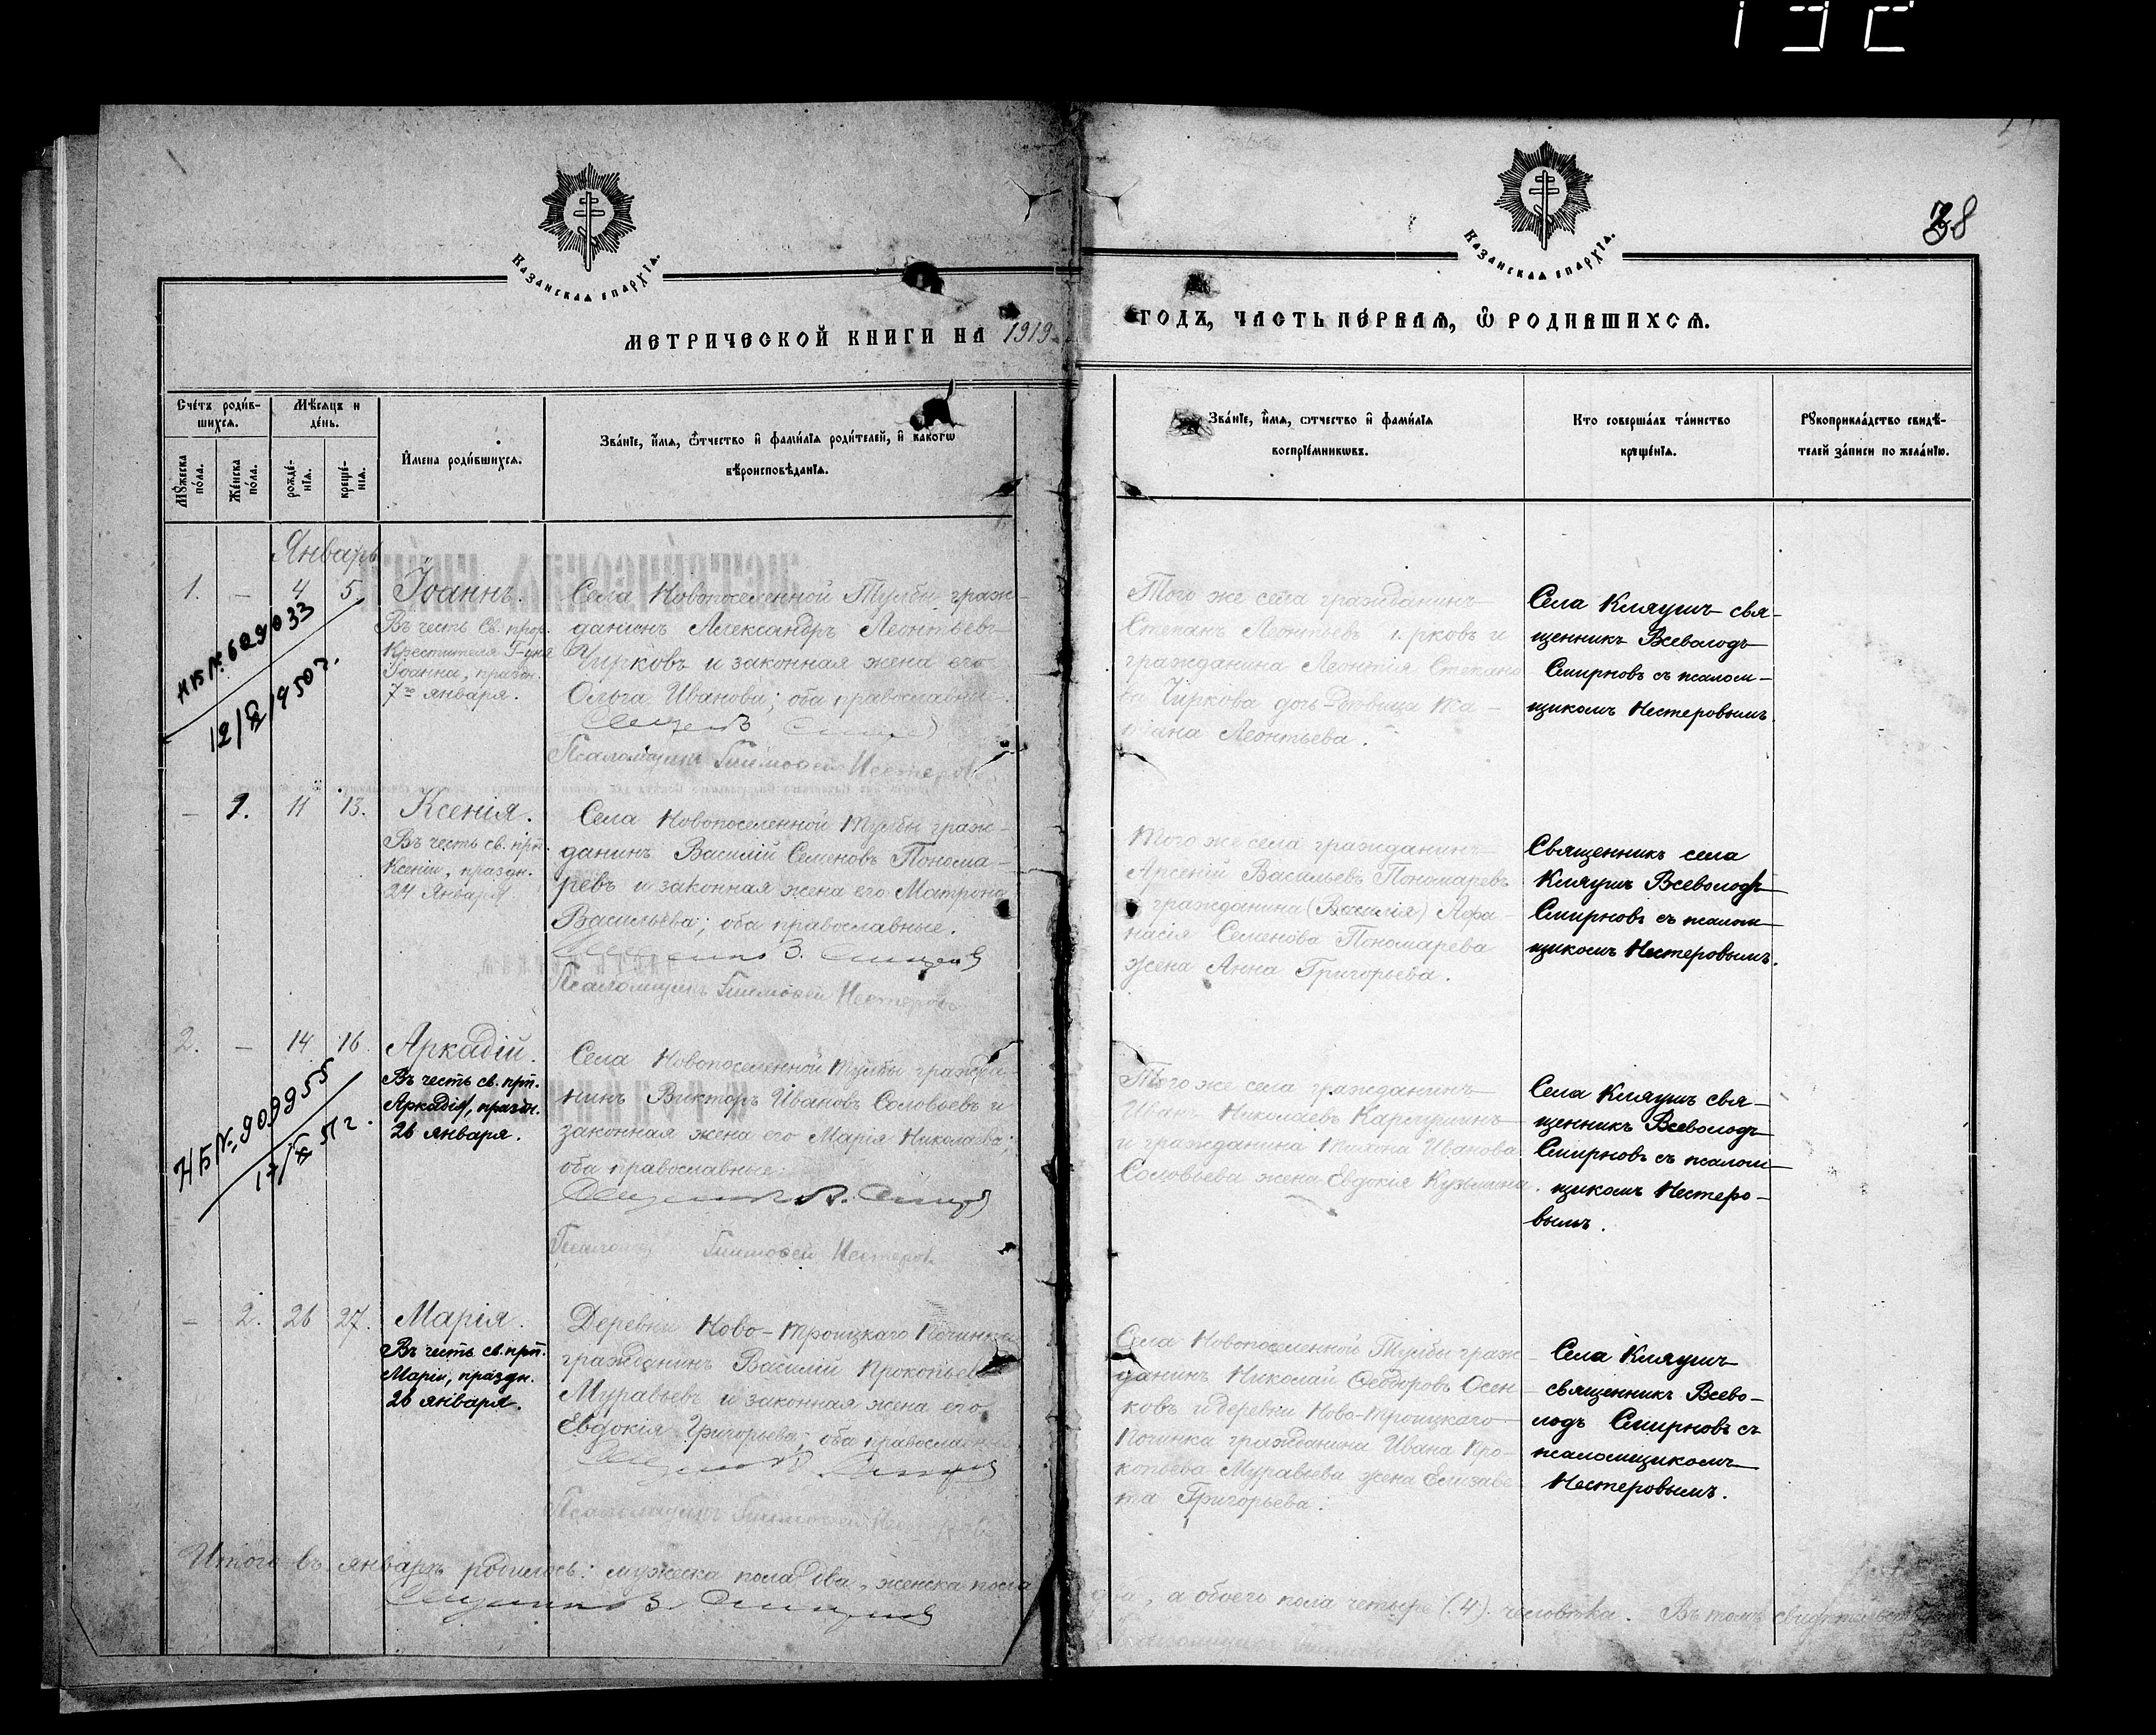 192
38
Казанская епархїя.
Казанская епархїя.
МЕТРИЧЕСКОЙ КНИГИ НА 1919
ГОДЪ, ЧАСТЬ ПЕРВАЯ, Ѡ РОДИВШИХСЯ.
Счетъ родив-
шихся.
Мѣсяцъ и
день.
Мꙋжеска
пола.
Женска
пола.
рожде-
нїя.
креще-
нїя.
Имена родившихся.
Званїе, имя, ѿчество и фамилїя родителей, и какогѡ
вѣроисповѣданїя.
Званїе, имя, ѿчество и фамилїя
воспрїемникѡвъ.
Кто совершалъ таинство
крещенїя.
Рꙋкоприкладство свидѣ-
телей записи по желанїю.
Январь
1. — 4 5 Іоаннъ.
Въ честь Св. прор.
Крестителя Г-дня
Іоанна, праздн.
7го января.
НБ № 629033
Села Новопоселенной Тулбы граж-
данинъ Александръ Леонтьевъ
Чирковъ и законная жена его
Ольга Иванова; оба православные
Псаломщикъ Тимофей Нестеровъ
Того же села гражданинъ
Степанъ Леонтьевъ рковъ и
гражданина Леонтія Степано
Чиркова дочь-дѣвица Та-
Леонтьева.
Села Кляушъ свя-
щенникъ Всеволодъ
Смирновъ съ псалом-
щикомъ Нестеровымъ
— 1. 11 13. Ксенія.
Въ честь св. прп.
Ксеніи, праздн.
24 Января
Села Новопоселенной Тулбы граж-
данинъ Василій Семеновъ Понома-
ревъ и законная жена его Матрона
Васильева; оба православные.
Псаломщикъ Тимофей Нестеровъ
Того же села гражданинъ
Арсеній Васильевъ Пономаревъ
гражданина (Василія) Афа-
насія Семенова Пономарева
жена Анна Григорьева.
Священникъ села
Кляушъ Всеволодъ
Смирновъ съ псалом
щикомъ Нестеровымъ.
2. — 14 16. Аркадій.
Въ честь св. прп.
Аркадія, праздн.
26 января.
НБ № 909955
Села Новопоселенной Тулбы гражда-
нинъ Викторъ Ивановъ Соловьевъ и
законная жена его Марія Николаева;
оба православные.
Тимофей Нестеров
Того же села гражданинъ
Иванъ Николаевъ Кармушинъ
и гражданина Тихона Иванова
Соловьева жена Евдокія Кузьмина.
Села Кляушъ свя-
щенникъ Всеволодъ
Смирновъ съ псалом-
щикомъ Нестеро-
вымъ.
— 2. 26 27. Марія.
Въ честь св. прп.
Маріи, праздн.
26 января.
Деревни Ново-Троицкаго Починка
гражданинъ Василій Прокопьевъ
Муравьевъ и законная жена его
Евдокія Григорьева; оба православные
Псаломщикъ Тимофей Нестеровъ
Села Новопоселенной Тулбы граж-
данинъ Николай Ѳеодоровъ Осен-
ковъ и деревни Ново-Троицкаго
Починка гражданина Ивана Про-
копьева Муравьева жена Елизаве
та Григорьева.
Села Кляушъ
священникъ Всево-
лодъ Смирновъ съ
псаломщикомъ
Нестеровымъ.
Итого въ январѣ родилось: мужеска пола два, женска пола
два, а обоего пола четыре (.4.) человѣка. Въ томъ